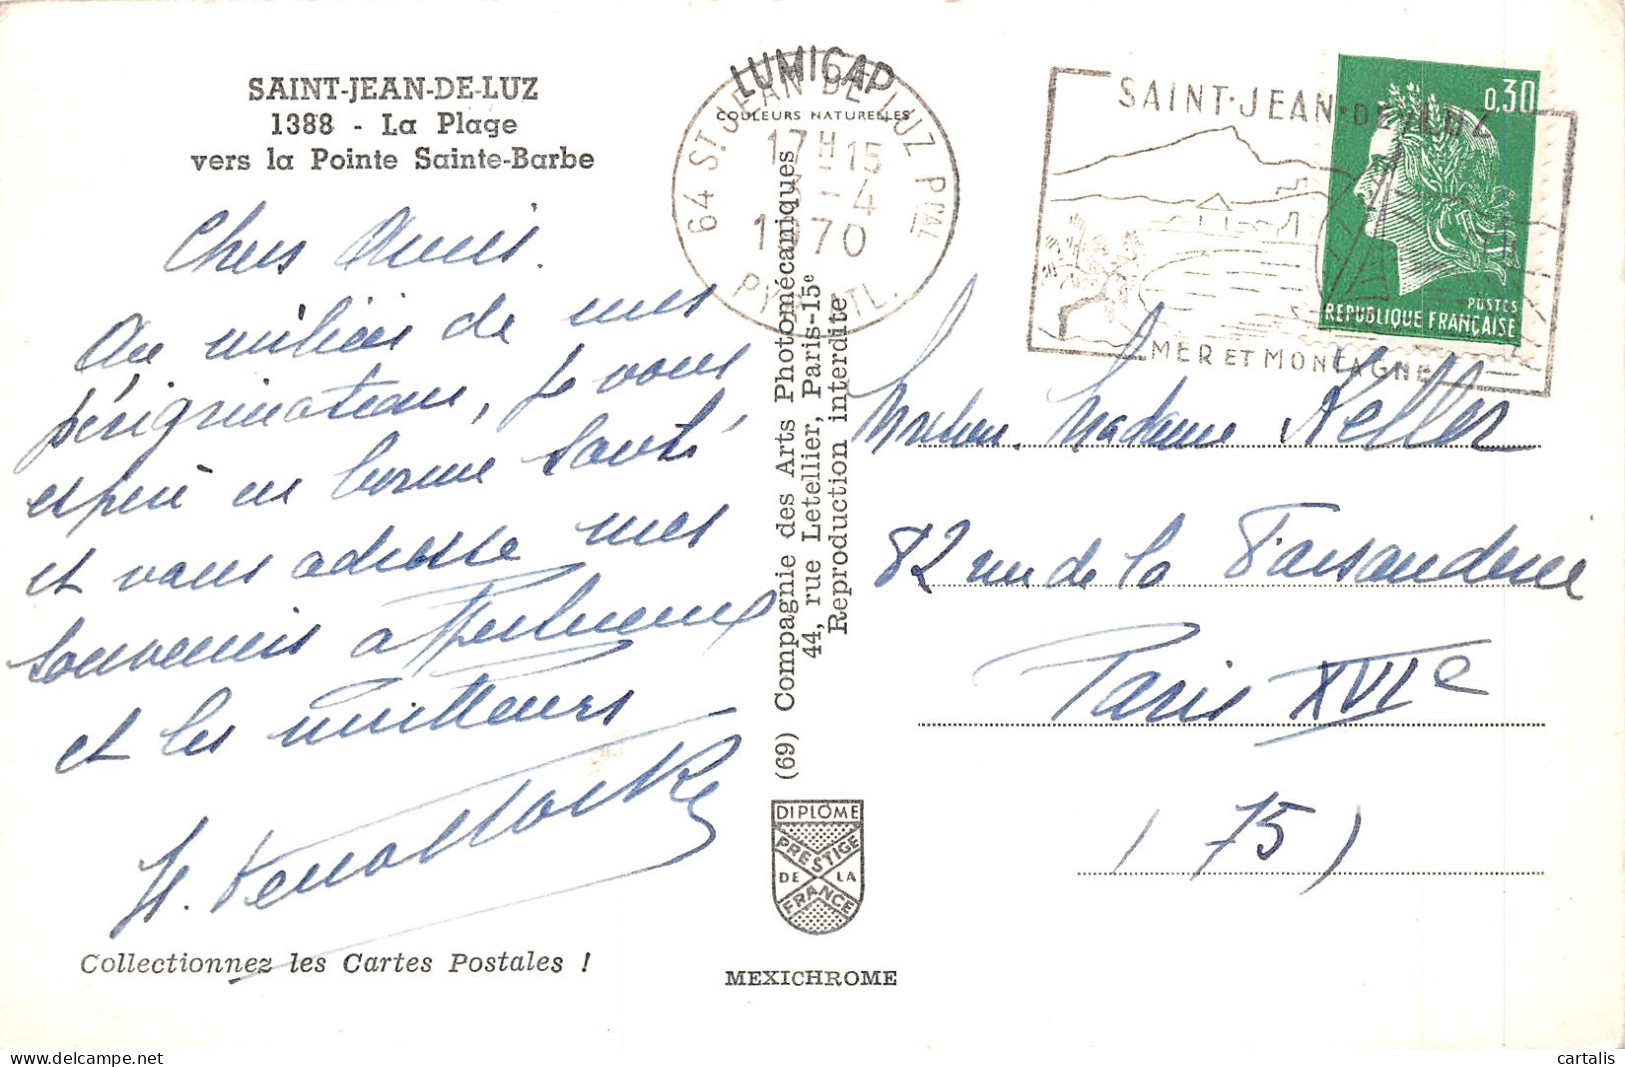 SAINT-JEAN-DE-LUZ
1388 - La Plage
vers la Pointe Sainte-Barbe
Chers Amis.
Au milieu de mes
pérégrinations, je vous
espère en bonne santé
et vous adresse mes
souvenirs affectueux
et les meilleurs
Collectionnez les Cartes Postales !
LUMICAP
COULEURS NATURELLES
64 ST JEAN-DE-LUZ PPAL
17H15
-4
1970
PYR ATL.
(69) Compagnie des Arts Photomécaniques
44, rue Letellier, Paris-15e
Reproduction interdite
DIPLÔME
PRESTIGE
DE LA
FRANCE
MEXICHROME
SAINT-JEAN-DE-LUZ
MER ET MONTAGNE
0,30
POSTES
REPUBLIQUE FRANÇAISE
Madame Keller
82 rue de la Faisanderie
Paris XVIe
(75)
cartalis